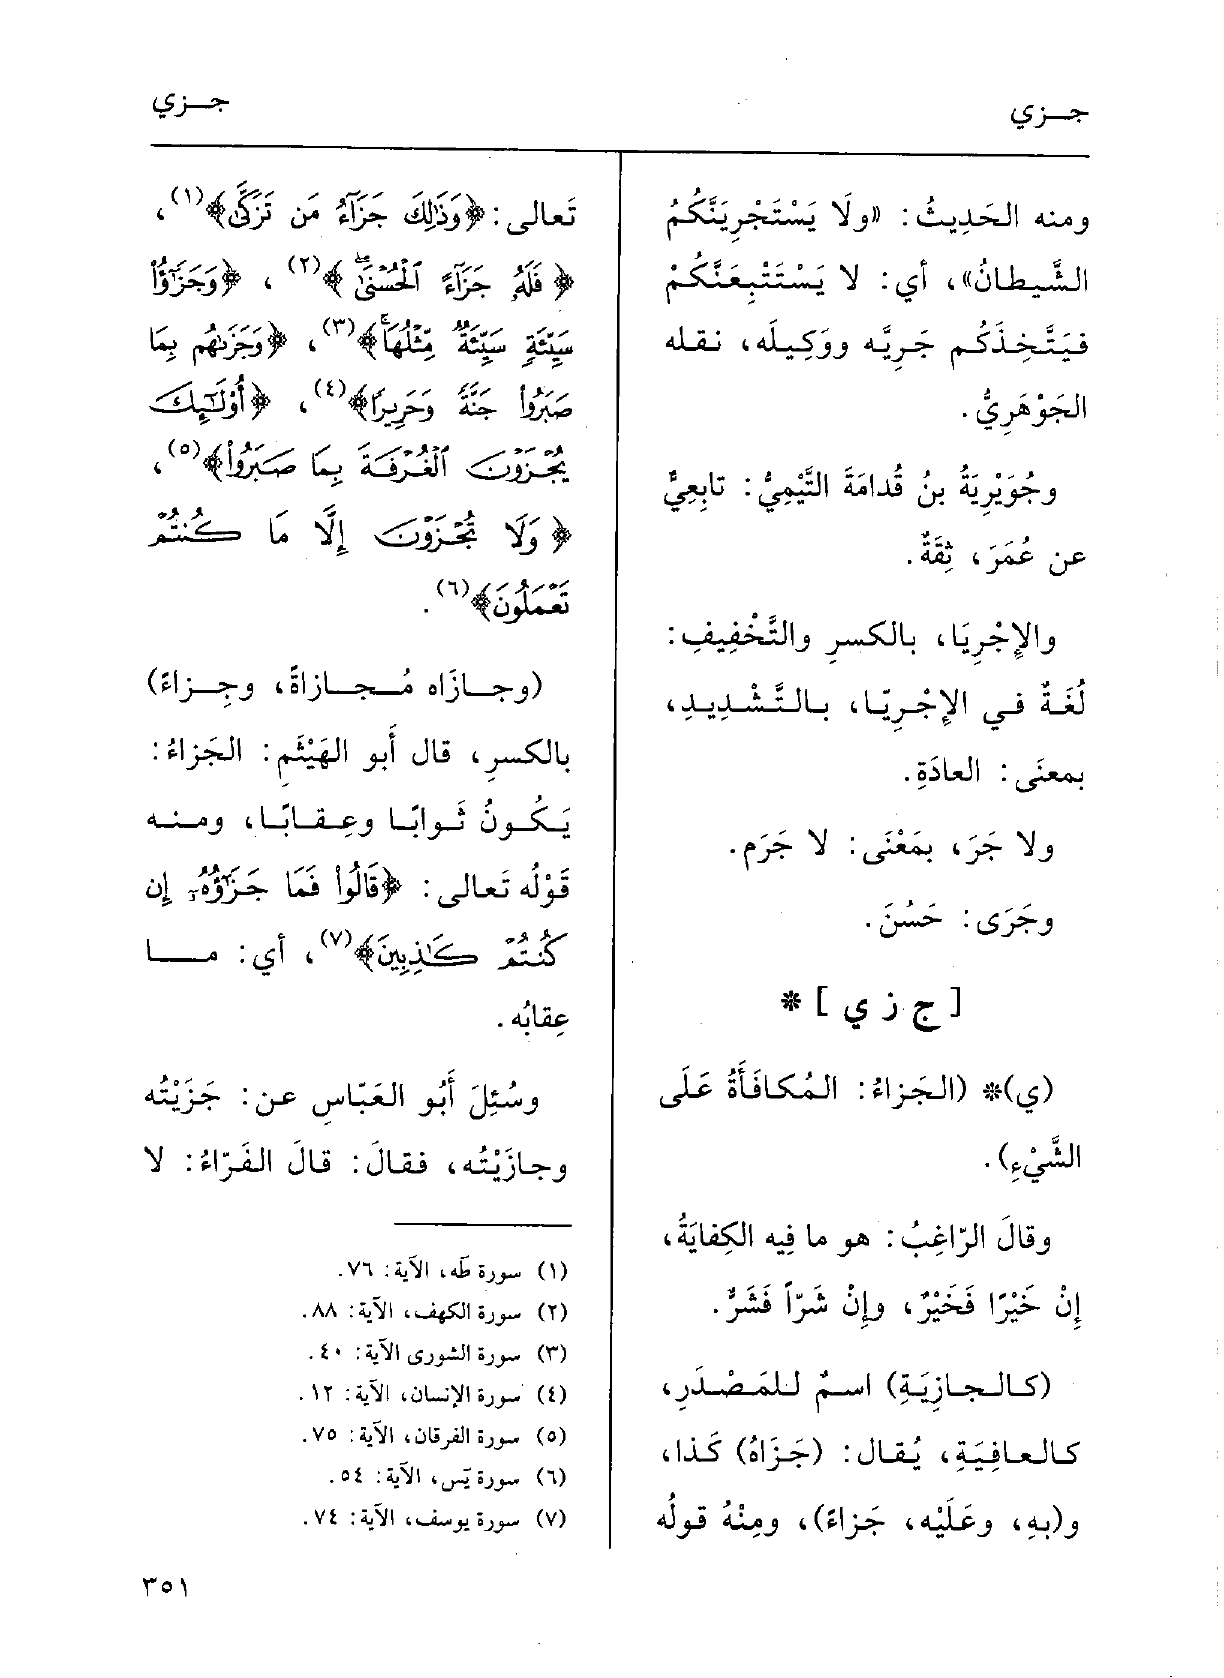 جـزي
جـزي
ومنه الحَدِيثُ: «ولَا يَسْتَجْرِيَنَّكُمُ
الشَّيطانُ»، أي: لا يَسْتَتْبِعَنَّكُمْ
فيَتَّخِذَكُم جَرِيَّه ووَكِيلَه، نقله
الجَوْهَرِيُّ.
وجُوَيْرِيَةُ بنُ قُدامَةَ التَّيْمِيُّ: تابِعِيٌّ
عن عُمَرَ، ثِقَةٌ.
والإِجْرِيَا، بالكسرِ والتَّخْفِيفِ:
لُغَةٌ في الإِجْرِيَّا، بالتَّشْدِيدِ،
بمعنَى: العادَةِ.
ولا جَرَ، بمَعْنَى: لا جَرَم.
وجَرَى: حَسُنَ.
[ ج ز ي ] *
(ي)* (الجَزاءُ: المُكافَأَةُ عَلَى
الشَّيْءِ).
وقالَ الرّاغِبُ: هو ما فِيه الكِفايَةُ،
إِنْ خَيْرًا فَخَيْرٌ، وإِنْ شَرّاً فَشَرٌّ.
(كالجازِيَةِ) اسمٌ للمَصْدَرِ،
كالعافِيَةِ، يُقال: (جَزَاهُ) كَذا،
و(بهِ، وعَلَيْه، جَزاءً)، ومِنْهُ قولُه
تَعالى: ﴿وَذَٰلِكَ جَزَآءُ مَن تَزَكَّىٰ﴾(١)،
﴿فَلَهُۥ جَزَآءً ٱلْحُسْنَىٰۖ﴾(٢)، ﴿وَجَزَٰٓؤُا۟
سَيِّئَةٍ سَيِّئَةٌ مِّثْلُهَاۖ﴾(٣)، ﴿وَجَزَىٰهُم بِمَا
صَبَرُوا۟ جَنَّةً وَحَرِيرًا﴾(٤)، ﴿أُو۟لَٰٓئِكَ
يُجْزَوْنَ ٱلْغُرْفَةَ بِمَا صَبَرُوا۟﴾(٥)،
﴿وَلَا تُجْزَوْنَ إِلَّا مَا كُنتُمْ
تَعْمَلُونَ﴾(٦).
(وجازَاه مُجازاةً، وجِزاءً)
بالكسرِ، قال أَبو الهَيْثَمِ: الجَزاءُ:
يَكُونُ ثَوابًا وعِقابًا، ومنه
قَوْلُه تَعالى: ﴿قَالُوا۟ فَمَا جَزَٰٓؤُهُۥٓ إِن
كُنتُمْ كَٰذِبِينَ﴾(٧)، أي: ما
عِقابُه.
وسُئِلَ أَبُو العَبّاسِ عن: جَزَيْتُه
وجازَيْتُه، فقالَ: قالَ الفَرّاءُ: لا
(١) سورة طه، الآية: ٧٦.
(٢) سورة الكهف، الآية: ٨٨.
(٣) سورة الشورى الآية: ٤٠.
(٤) سورة الإنسان، الآية: ١٢.
(٥) سورة الفرقان، الآية: ٧٥.
(٦) سورة يٓس، الآية: ٥٤.
(٧) سورة يوسف، الآية: ٧٤.
٣٥١